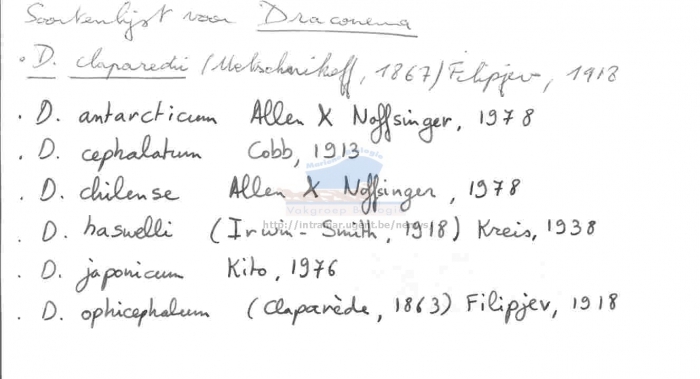 Soortenlijst voor Draconema
. D. claparedii (Metschnikoff, 1867) Filipjev, 1918
. D. antarcticum Allen & Noffsinger, 1978
. D. cephalatum Cobb, 1913
. D. chilense Allen & Noffsinger, 1978
. D. haswelli (Irwin-Smith, 1918) Kreis, 1938
. D. japonicum Kito, 1976
. D. ophicephalum (Claparède, 1863) Filipjev, 1918
Vakgroep Biologie
http://intramar.ugent.be/nemys